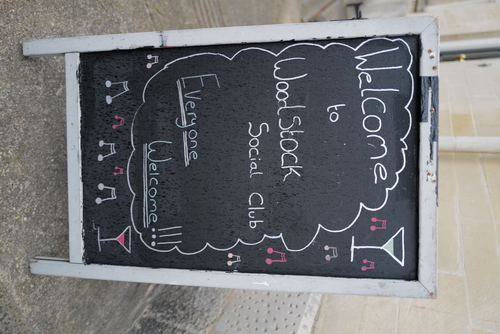 Welcome
to
WoodStock
Social Club
Everyone
Welcome...!!!